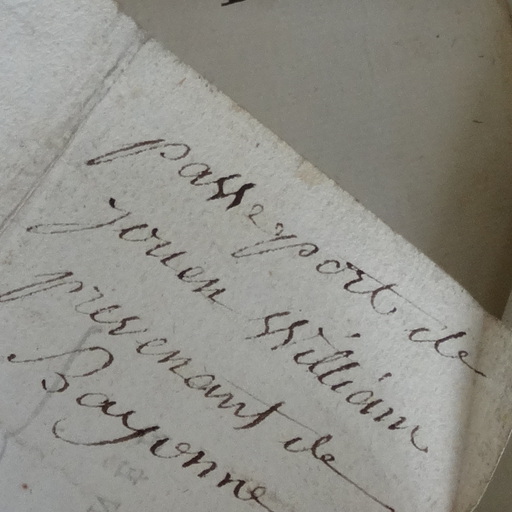 passeport de
jouen William
provenant de
Bayonne